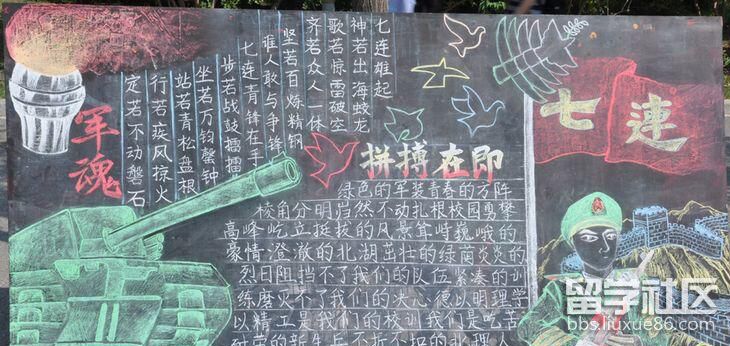 七连雄起
神若出海蛟龙
歌若惊雷破空
齐若众人一体
坚若百炼精钢
谁人敢与争锋
七连青锋在手
步若战鼓擂擂
坐若万钧磬钟
站若青松盘根
行若疾风掠火
定若不动磐石
军魂
七連
拼搏在即
绿色的军装青春的方阵
棱角分明岿然不动扎根校园勇攀
高峰屹立挺拔的风景耸峙巍峨的
豪情澄澈的北湖茁壮的绿茵炎炎的
烈日阻挡不了我们的队伍紧凑的训
练磨灭不了我们的决心德以明理学
以精工是我们的校训我们是吃苦
耐劳的新生兵不折不扣的北理人
留学社区
bbs.liuxue86.com